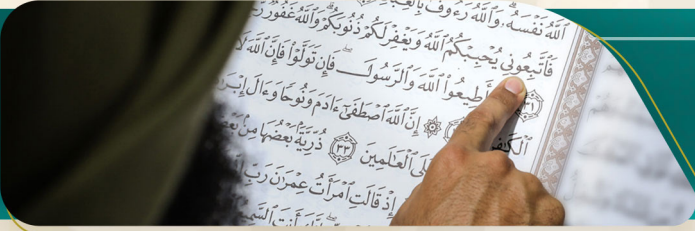 ٱللَّهُ نَفْسَهُۥ وَٱللَّهُ رَءُوفٌۢ
فَٱتَّبِعُونِى يُحْبِبْكُمُ ٱللَّهُ وَيَغْفِرْ لَكُمْ ذُنُوبَكُمْ وَٱللَّهُ غَفُورٌ
أَطِيعُوا۟ ٱللَّهَ وَٱلرَّسُولَ فَإِن تَوَلَّوْا۟ فَإِنَّ ٱللَّهَ لَا
إِنَّ ٱللَّهَ ٱصْطَفَىٰٓ ءَادَمَ وَنُوحًا وَءَالَ
ٱلْعَـٰلَمِينَ ٣٣ ذُرِّيَّةًۢ بَعْضُهَا مِنۢ
إِذْ قَالَتِ ٱمْرَأَتُ عِمْرَٰنَ رَبِّ
أَنتَ